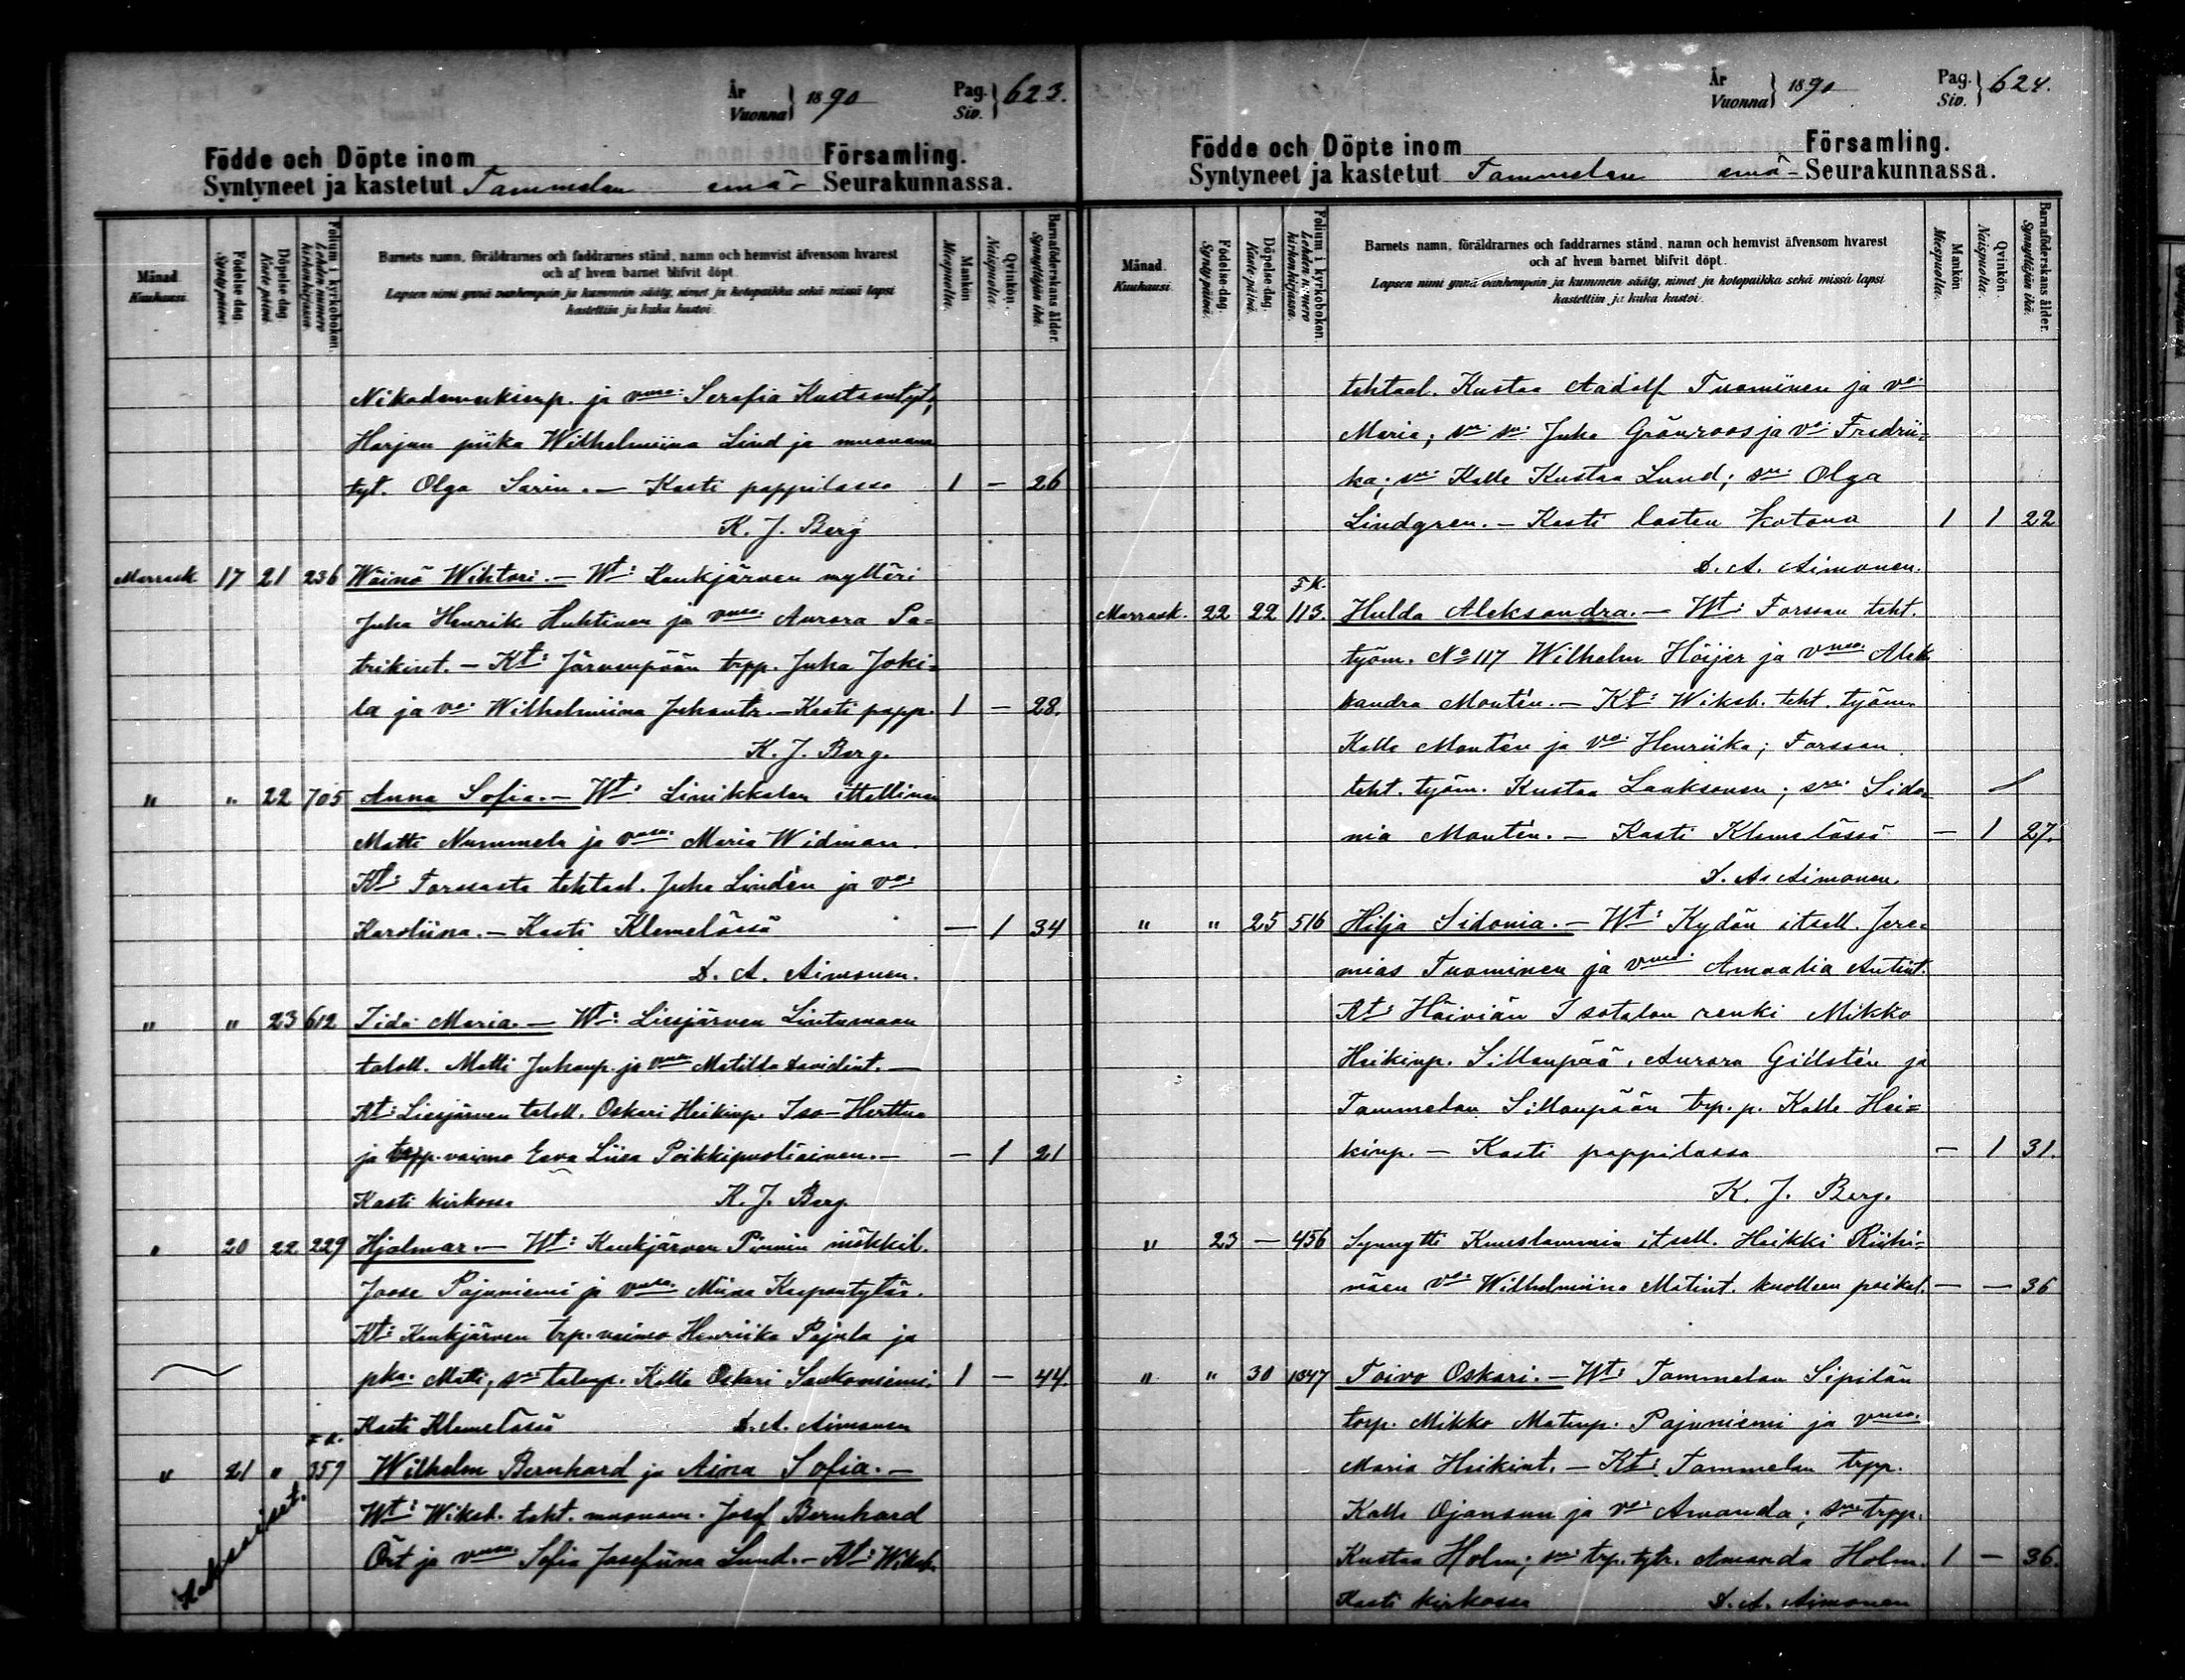 År
Vuonna } 1890
Pag.
Siv. } 623.
Födde och Döpte inom Församling.
Syntyneet ja kastetut Tammelan emä- Seurakunnassa.
Månad.
Kuukausi.
Födelse-dag.
Syntypäivä.
Döpelse-dag.
Kaste päivä.
Folium i kyrkobokon.
Lehden numero kirkonkirjassa.
Barnets namn, föräldrarnes och faddrarnes stånd, namn och hemvist äfvensom hvarest
och af hvem barnet blifvit döpt.
Lapsen nimi ynnä vanhempain ja kummein sääty, nimet ja kotopaikka sekä missä lapsi
kastettiin ja kuka kastoi.
Mankön
Miespuolta.
Qvinkön.
Naispuolta.
Barnaföderskans ålder.
Synnyttäjän ikä.
ja vmo: Serafia
Harjun piika Wilhelmiina Lind ja
tyt. Olga Sarin. — Kasti pappilassa 1 — 26
K. J. Berg
Marrask 17 21 236 Wäinö Wihtori. — Wt: Kaukjärven mylläri
Juha Henrik Huhtinen ja vmo: Aurora Pa=
trikint. — Kt: Järvenpään trpp. Juha Joki=
la ja vo: Wilhelmiina Juhantr. — Kasti papp. 1 — 28.
K. J. Berg.
" " 22 705 Anna Sofia. — Wt: Linikkalan itsellinen
Matti Nummela ja vmo: Maria Widman.
Kt: Forssasta tehtaal. Juha Lindén ja vo:
Karoliina. — Kasti Klemelässä — 1 34
D. A. Aimonen.
" " 23 612 Iida Maria. — Wt: Liesjärven Lintumaan
taloll. Matti Juhanp. ja vmo Matilda Davidint. —
Kt: Liesjärven taloll. Oskari Heikinp. Iso-Herttua
ja trpp. vaimo Eeva Liisa Poikkipuoliainen. — — 1 21
Kasti kirkossa K. J. Berg.
" 20 22 229 Hjalmar. — Wt: Kaukjärven Pirunin mökkil.
Joose Pajuniemi ja vmo: Miina Kaapontytär.
Kt: Kaukjärven trp. vaimo Henriika Pajula ja
pka. Matti, sm: talonp. Kalle Oskari Saukoniemi. 1 — 44.
Kasti Klemelässä D. A. Aimonen
F.K.
" 21 " 359 Wilhelm Bernhard ja Aina Sofia. —
Kaksoiset.
Wt: Wiksb. teht. muonam. Josef Bernhard
Öst ja vmo: Sofia Josefiina Lund. — Kt: Wiksb.
År
Vuonna } 1890
Pag.
Siv. } 624.
Födde och Döpte inom Församling.
Syntyneet ja kastetut Tammelan emä- Seurakunnassa.
Månad.
Kuukausi.
Födelse-dag.
Syntypäivä.
Döpelse-dag.
Kaste päivä.
Folium i kyrkobokon.
Lehden numero kirkonkirjassa.
Barnets namn, föräldrarnes och faddrarnes stånd, namn och hemvist äfvensom hvarest
och af hvem barnet blifvit döpt.
Lapsen nimi ynnä vanhempain ja kummein sääty, nimet ja kotopaikka sekä missä lapsi
kastettiin ja kuka kastoi.
Mankön
Miespuolta.
Qvinkön.
Naispuolta.
Barnaföderskans ålder.
Synnyttäjän ikä.
tehtaal. Kustaa Aadolf Tuominen ja vo:
Maria; sm: sm: Juha Grönroos ja vo: Fredrii=
ka; sm: Kalle Kustaa Lund; sm: Olga
Lindgren. — Kasti lasten kotona 1 1 22
D. A. Aimonen.
F.K.
Marrask. 22 22 113. Hulda Aleksandra. — Wt: Forssan teht.
työm. No 117 Wilhelm Höijer ja vmo: Alek
sandra Montén. — Kt: Wiksb. teht. työm.
Kalle Montén ja vo: Henriika; Forssan
teht. työm. Kustaa Laaksonen; sm: Sido=
nia Montén. — Kasti Klemelässä — 1 27.
D. A. Aimonen.
" " 25 516 Hilja Sidonia. — Wt: Kydön itsell. Jere=
mias Tuominen ja vmo: Amaalia Antint.
Kt: Häiviän Isotalon renki Mikko
Heikinp. Sillanpää, Aurora Gillstén ja
Tammelan Sillanpään trp. p. Kalle Hei=
kinp. — Kasti pappilassa — 1 31.
K. J. Berg.
" 23 — 456 Synnytti Kuuslammin itsell. Heikki Riihi=
mäen vo: Wilhelmiina Matint. kuolleen poikal. — — 36
" " 30 1047 Toivo Oskari. — Wt: Tammelan Sipilän
torp. Mikko Matinp. Pajuniemi ja vmo:
Maria Heikint. — Kt: Tammelan trpp.
Kalle Ojansuu ja vo: Amanda; sm: trpp.
Kustaa Holm; sm: trp. tytr. Amanda Holm. 1 — 36.
Kasti kirkossa D. A. Aimonen